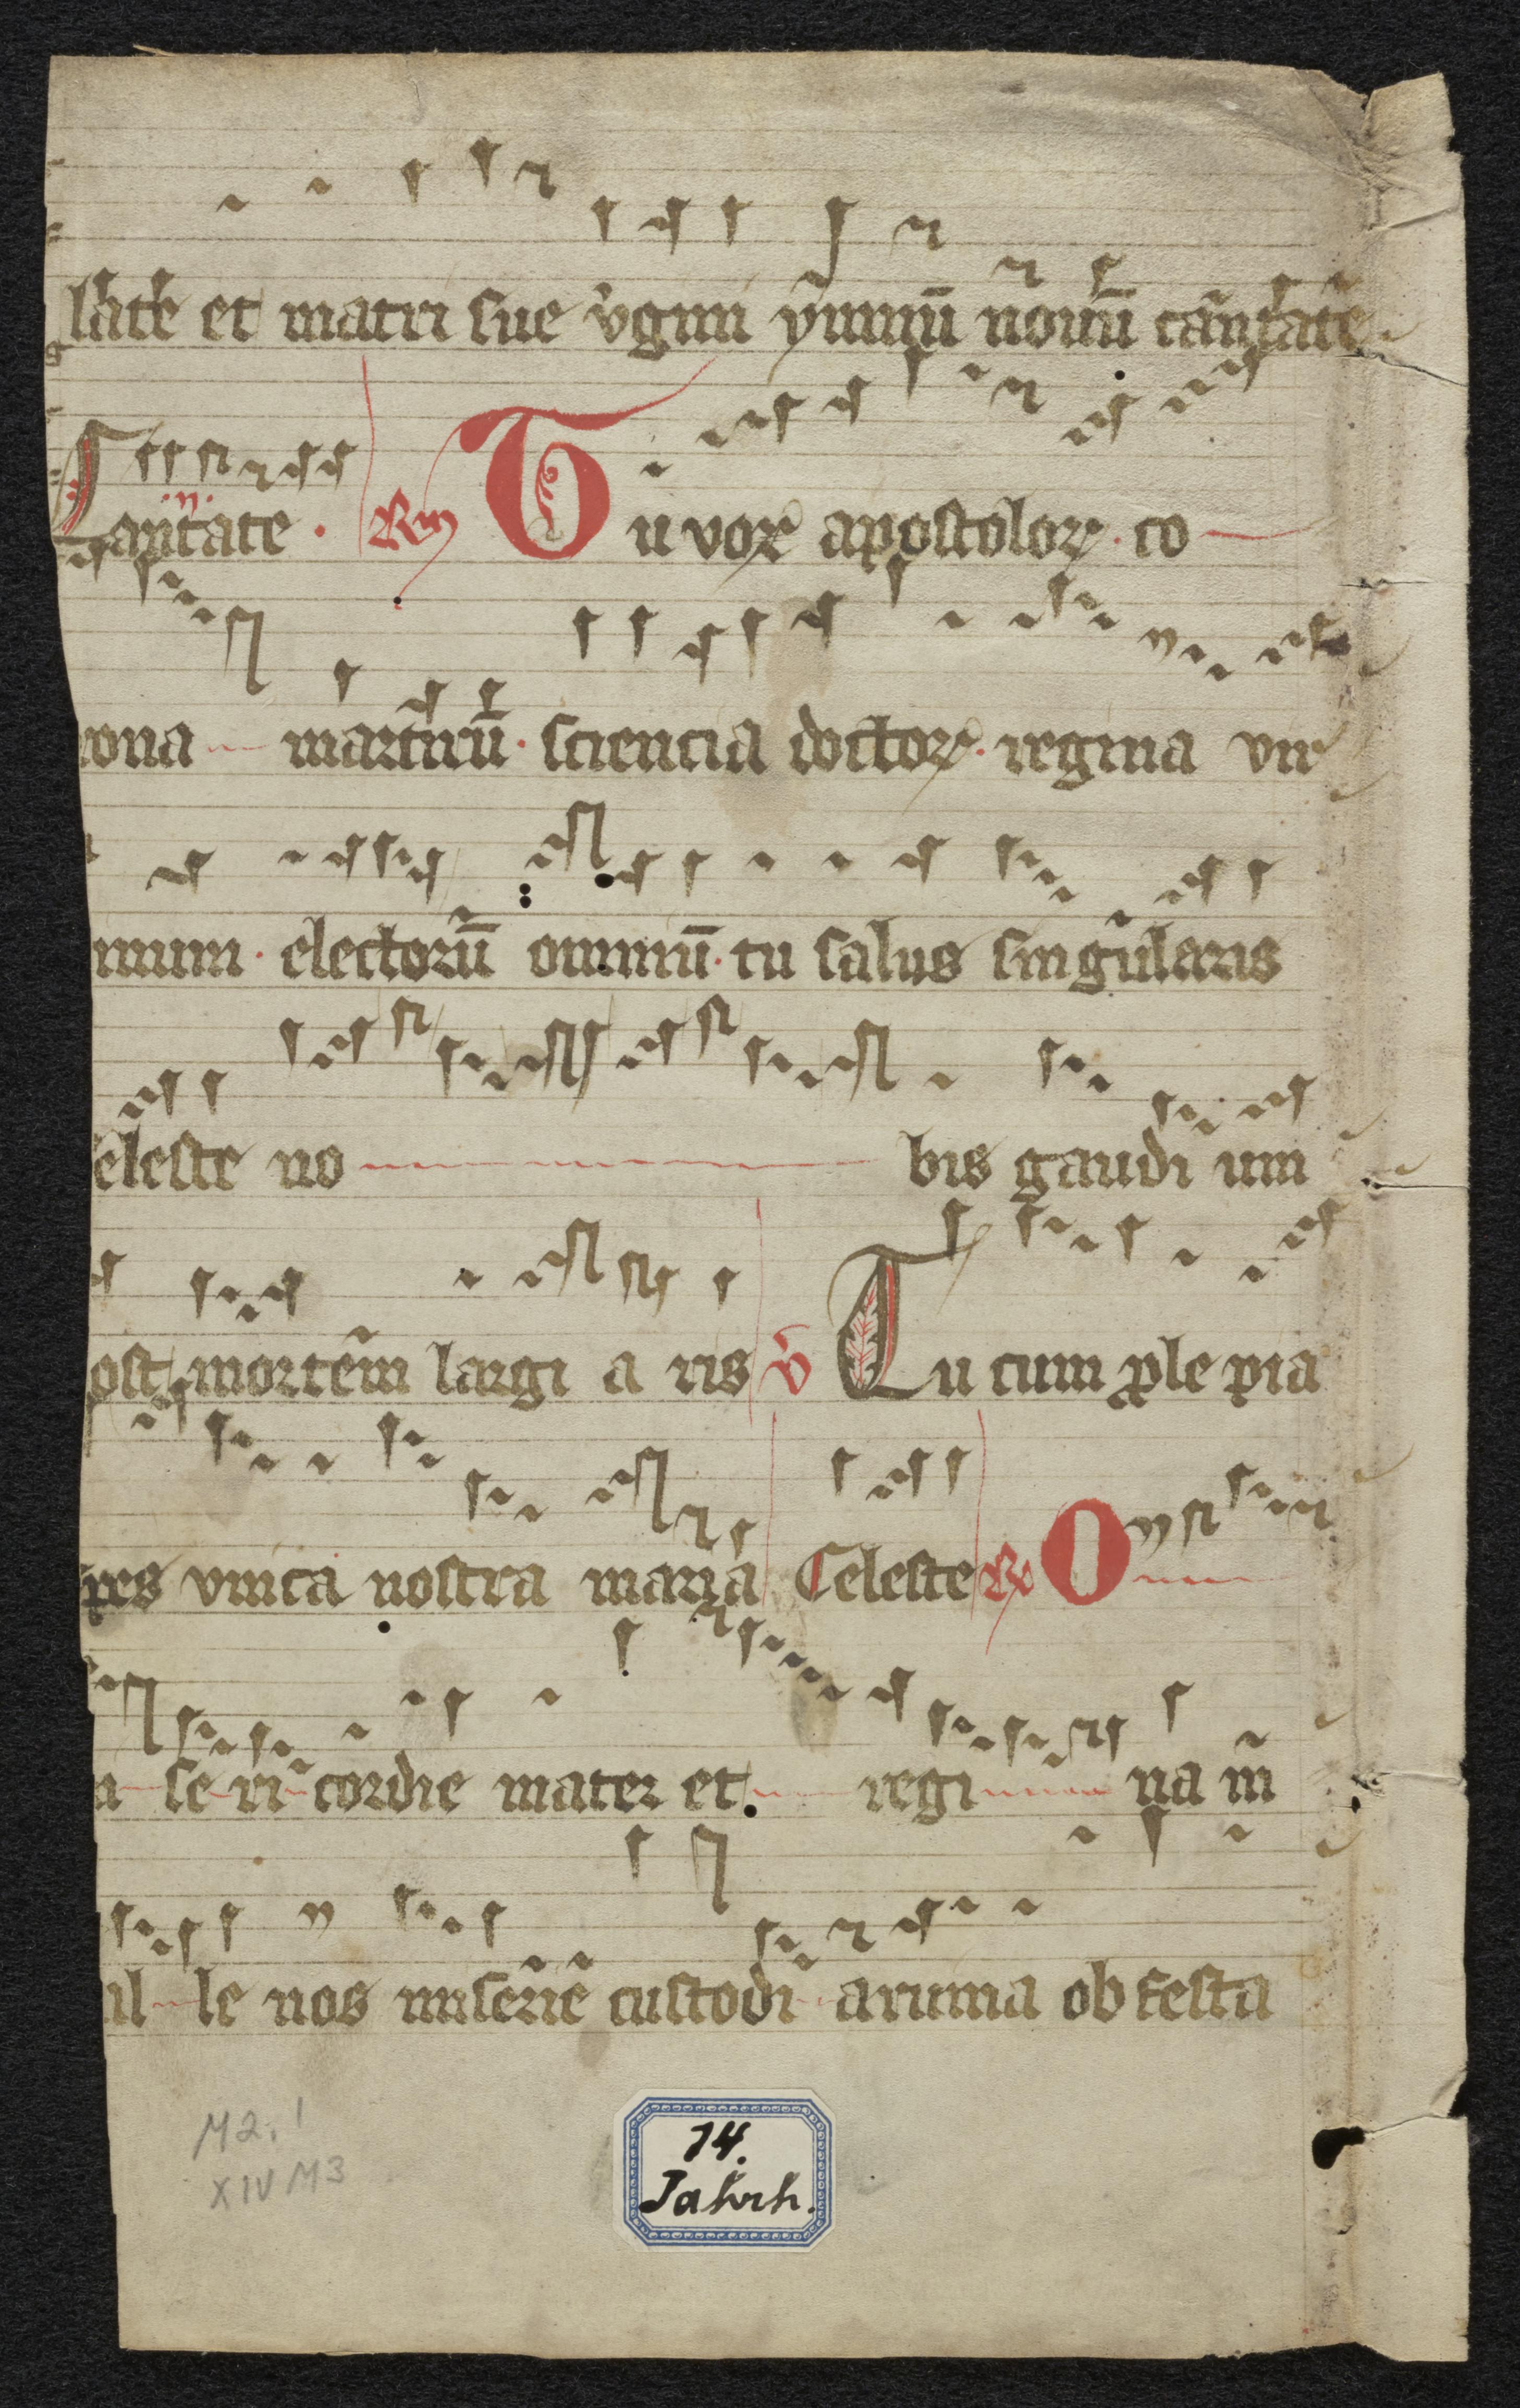 late et matri sue v̾gini ẏmnū nouū cātate
Cantate · Rm Tu vox apostoloꝝ · co
rona martirū · sciencia doctoꝝ · regina vir
ginum · electorū omniū · tu salus singularis
celeste no bis gaudi um
post mortem largi a ris v̄ Tu cum ꝓle pia
spes vnica nostra maria Celeste R̸ O
i se ri cordie mater et regi na m̄
il le nos miserie custodi anima ob festa
M2.1
XIV M3
14.
Jahrh.